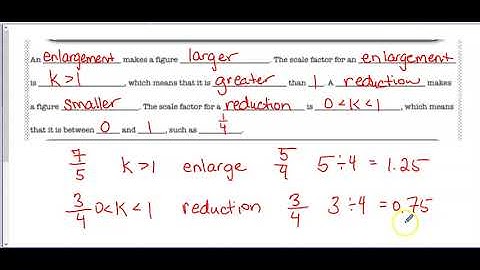 An enlargement makes a figure larger. The scale factor for an enlargement
is k>1, which means that it is greater than 1. A reduction makes
a figure smaller. The scale factor for a reduction is 0<k<1, which means
that it is between 0 and 1, such as 1/4.
7/5 k>1 enlarge 5/4 5÷4 = 1.25
3/4 0<k<1 reduction 3/4 3÷4 = 0.75